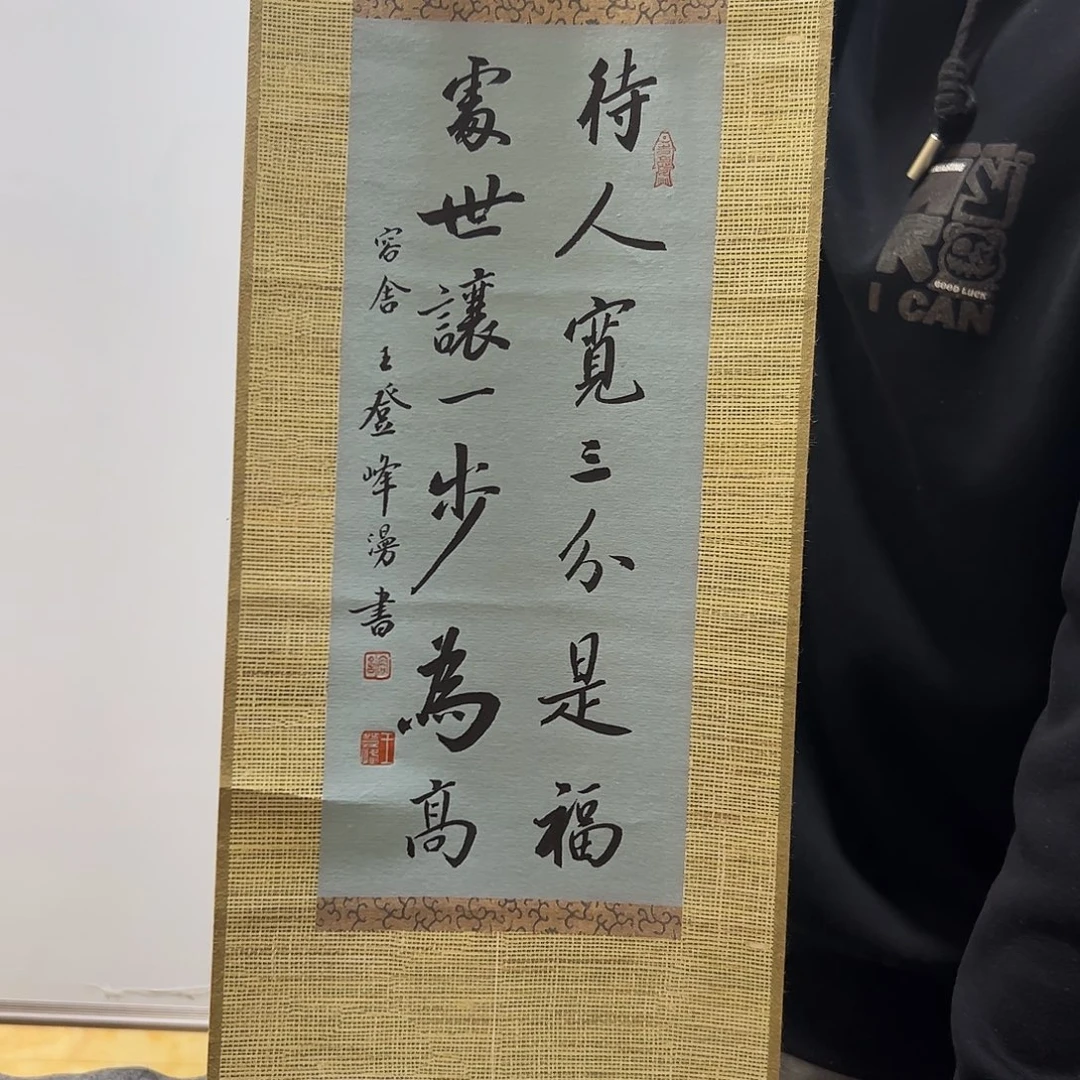 待人寬三分是福
處世讓一步為高
容舍 王登峰漫書
GOOD LUCK
I CAN